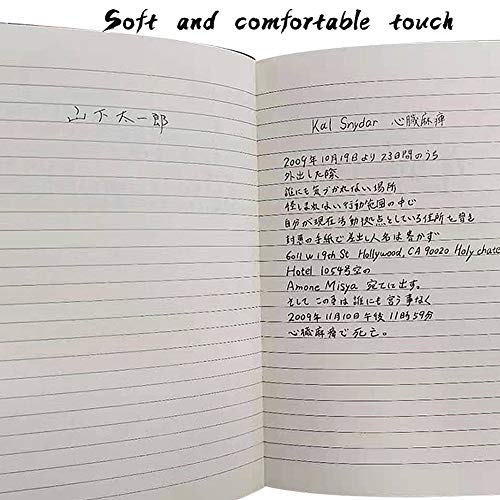 Soft and comfortable touch
山下太一郎
Kal Snydar 心臓麻痺
2009年10月19日より23日間のうち
外出した際
誰にも気づかれない場所
怪しまれない行動範囲の中で
自分が現在活動拠点としている住所を書き
封書の手紙で差出し人名は書かず
6011 W 19th St Hollywood, CA 90020 Holy chateau
Hotel 1054号室の
Amone Misya 宛てに出す。
そしてこの事は誰にも言う事なく
2009年11月10日午後11時59分
心臓麻痺で死亡。